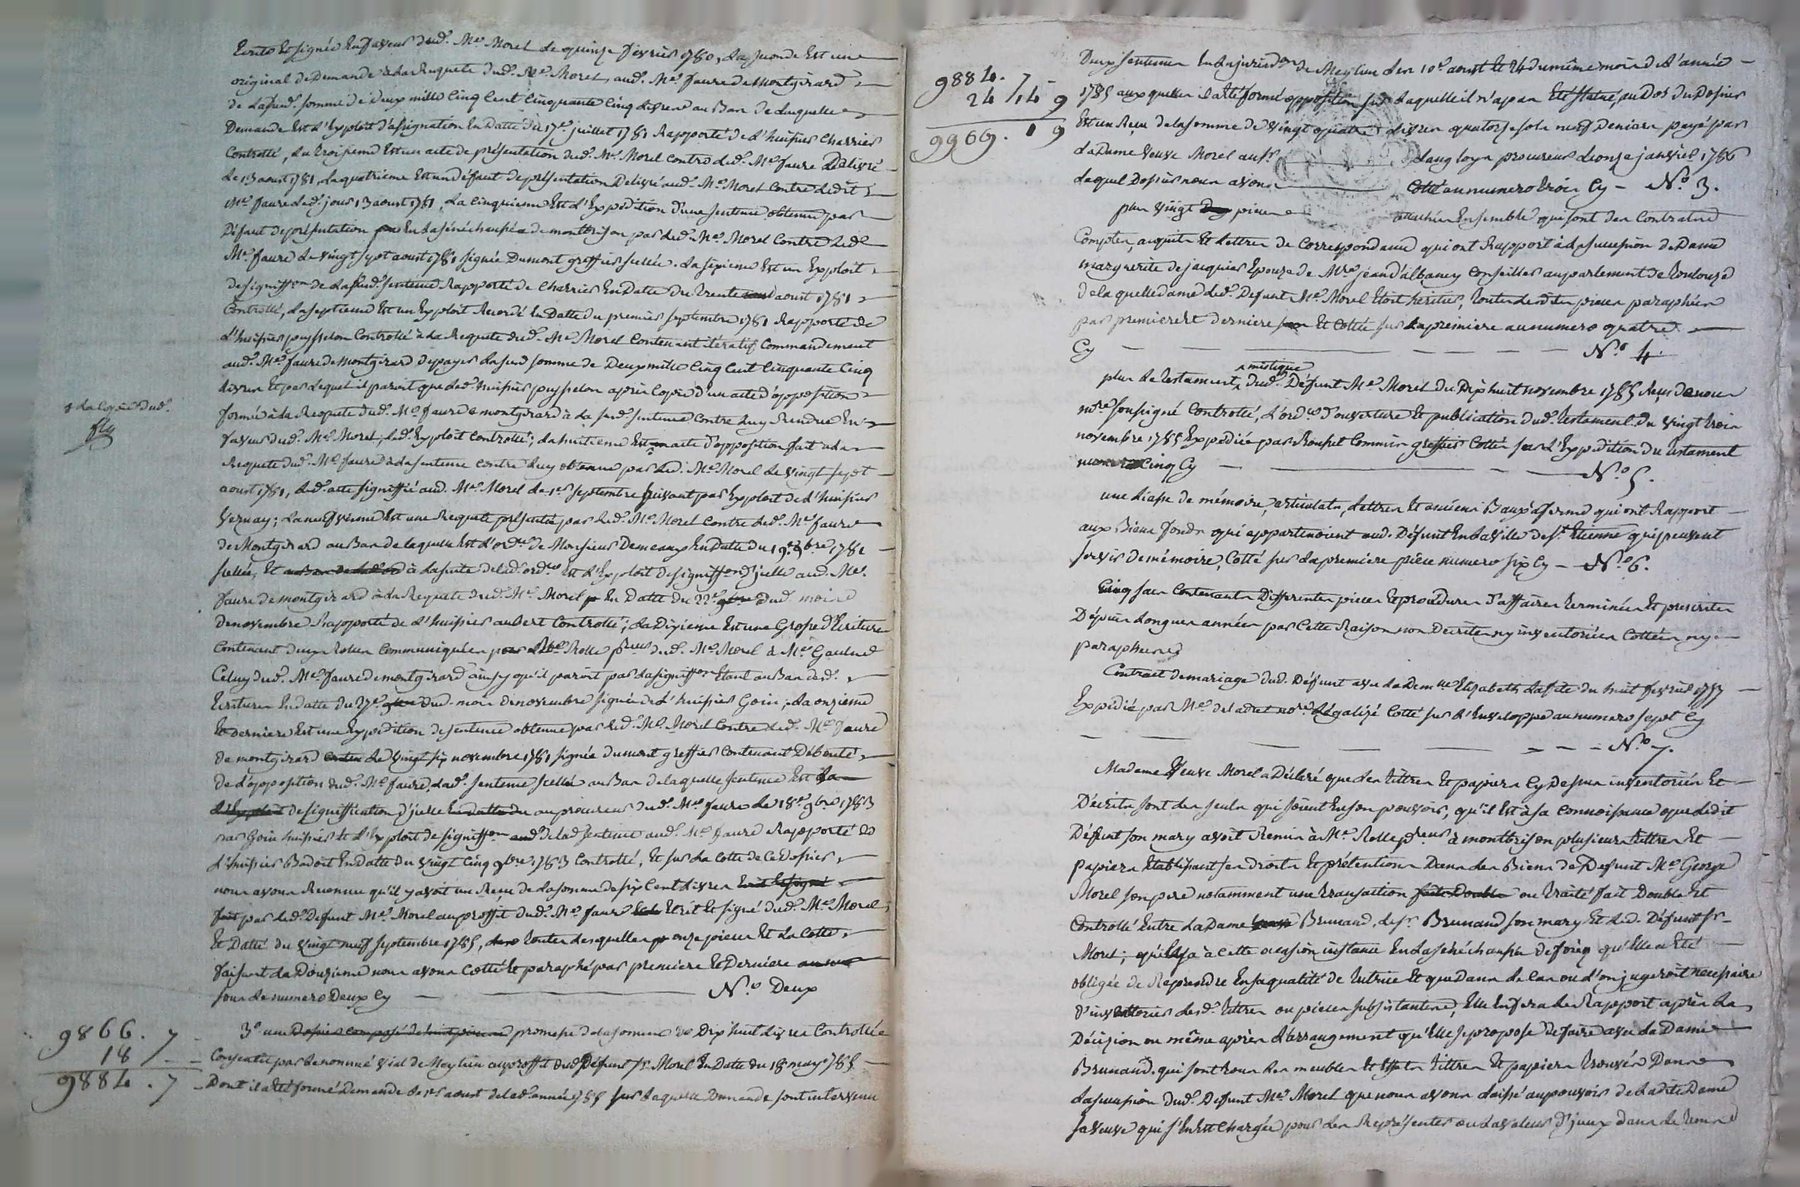 Ecrite et signée en faveur dud. Me. Morel de quinze fevrier 1780, la seconde est une
original de Demande à la Requete dud. Me. Morel, aud. Me. faure de Montgirard
de lasusd. somme de deux mille cinq cent cinquante cinq livres au Bas de laquelle
Demande est l'Exploit d'assignation en Datte du 17e. juillet 1781 Rapporté de l'huissier Charrier
Controllé, la troisieme est un acte de présentation dud. Me. Morel contre led. Me. faure Délivré
le 13 aoust 1781, la quatrieme est un défaut de présentation Délivré aud. Me. Morel Contre ledit
Me. faure led. jour 13 aoust 1781, La cinquieme est l'Expédition d'une sentence obtenue par
Défaut de présentation en la sénéchaussée de montbrison par led. Me. Morel Contre led.
Me. faure le vingt sept aoust 1781 signée Dumont greffier scellée. La sixieme est un Exploit
de signiffon. de lasusd. sentence Rapporté de Charrier en Datte du trente aoust 1781
Controllé, la septieme est un Exploit Recordé en Datte du premier septembre 1781 Rapporté de
l'huissier puysselon Controllé à la Requete dud. Me. Morel Contenant itératif Commandement
aud. Me. faure de Montgirard de payer lasusd somme de Deux mille cinq cent cinquante cinq
livres et par lequel il paroit que led. huissier puysselon après copie d'un acte d'opposition
formé à la Requete dud. Me. faure de montgirard à la susd. sentence contre luy Rendue en
+ la copie dud.
faveur dud. Me. Morel, led. Exploit controllé; la huitieme est acte d'opposition fait à la
Requete dud. Me. faure à la sentence contre luy obtenue par led. Me. Morel le vingt sept
aoust 1781, led. acte signiffié aud. Me. Morel le 1er septembre suivant par Exploit de l'huissier
Vernay; la neufvieme est une Requete présentée par led. Me. Morel contre led. Me. faure
de Montgirard au Bas de laquelle est l'ordce. de Monsieur Demeaux en Datte du 19e. 9bre. 1781
scellée, et à la suite de lad. ordce. est l'Exploit de signiffon. d'jcelle aud. Me.
faure de montgirard à la Requete dud. Me. Morel en Datte du 22e. dud. mois
de novembre Rapporté de l'huissier aubert Controllé; la Dixieme est une Grosse d'Ecriture
Contenant deux Rolles communiquée Rolle dud. Me. Morel à Me. Goulard
Celuy dud. Me. faure de montgirard ainsy qu'il paroit par la signiffon. étant au Bas desd.
Ecritures en datte du 27e. Dud. mois de novembre signée de l'huissier Goin; la onzieme
et derniere est une Expédition de sentence obtenue par led. Me. Morel Contre led. Me. faure
de montgirard le vingt six novembre 1781 signée dumont greffier contenant Débouté
de l'opposition dud. Me. faure, lad. sentence scellée au Bas de laquelle sentence est la
de signiffication d'jcelle au procureur dud. Me. faure le 18e. 9bre 1783
par Goin huissier et l'Exploit de signiffon. de lad sentence aud. Me. faure Rapporté de
l'huissier Badoit en Datte du vingt cinq 9bre. 1783 Controllé, et sur la cotte de ce Dossier,
nous avons Reconnu qu'il y avoit un Reçu de la somme de six cent livres
par led. Deffunt Me. Morel au proffit dud. Me. faure Ecrit et signé dud. Me. Morel,
et Datté du vingt neuf septembre 1785, toutes lesquelles onze pieces et la cotte,
faisant la Douzieme nous avons Cotté et paraphé par premiere et Derniere
sous le numero Deux Cy — No. Deux
3e. une promesse de la somme de Dix huit livres Controllée
Consentie par le nommé Vial de Meylieu au proffit dud Défunt Sr. Morel en Datte du 18 may 1785
Dont il a été formé Demande le 1er aoust de lad. année 1785 sur laquelle Demande sont intervenu
9866. 7
18 /
9884. 7
9884. 7
24 /14 9
9969. 1 9
Deux sentences en la jurisdon. de Meylieu des 10e. aoust et 24 du même mois de l'année
1785 aux quelles il a été formé opposition sur laquelle il n'a pas été statué, au Dos du Dossier
est un Reçu de la somme de Vingt quatre livres quatorze sols neuf Deniers payé par
La Dame Veuve Morel au Sr. Langloys procureur le onze janvier 1786
Lequel Dossier nous avons Cotté au numero trois Cy — No. 3.
plus vingt pieces attachées Ensemble qui sont des Contrats
Comptes, acquits et Lettres de Correspondance qui ont Rapport à la succession de Dame
Marguerite de jacquier Epouse de Mre. jean d'albaney Conseiller au parlement de toulouse
de laquelle dame led. Défunt Me. Morel étoit héritier, toutes lesdites pieces paraphées
par premiere et derniere et Cottée sur la premiere au numero quatre.
Cy — No. 4.
plus le testament mistique dud. Défunt Me. Morel du Dix huit novembre 1785 Reçu de nous
nre. soussigné Controllé, l'ordce d'ouverture et publication dud. testament du vingt trois
novembre 1785 Expédiée par Commis greffier Cottée sur l'Expédition du testament
numero Cinq Cy — No. 5.
une liasse de mémoire, articulats, Lettres et anciens Baux à ferme qui ont Rapport
aux Biens fonds qui appartenoient aud. Défunt En la ville de St. Etienne qui peuvent
servir de mémoire, Cotté sur la première pièce numero six Cy — No. 6.
Cinq sacs Contenants Differentes pieces et procedures d'affaires terminées et prescrites
Dépuis Longues années par Cette Raison non Décrites ny inventoriées Cottées ny
paraphées
Contrat de mariage dud. Défunt avec la Demlle Elizabeth du huit fevrier 1757
Expédié par Me. delaitre nore. Légalisé Cotté sur l'Enveloppe au numero sept Cy
— No. 7.
Madame Veuve Morel a Déclaré que les titres et papiers Cy Dessus inventoriés et
Décrits sont les seuls qui soient en son pouvoir, qu'il est à sa connoissance que ledit
Défunt son mary avoit Remis à Me. Rolle à montbrison plusieurs titres et
papiers Etablissant ses droits et prétentions Dans les Biens de Défunt Me. George
Morel son pere notamment une transaction ou traité fait Double et
Controllé Entre la Dame Brunand, le Sr. Brunand son mary et led. Défunt Sr.
Morel; à cette ocasion instance en la sénéchaussée de forêz qu'elle a été
obligée de Reprendre En sa qualité de tutrice et que dans le cas où l'on jugeroit nécessaire
d'inventorier lesd. titres ou pieces subsistantes, Elle en fera le Rapport après la
Décision ou même après l'arrangement qu'Elle se propose de faire avec la Dame
Brunand. qui sont tous les meubles et effets titres et papiers trouvés Dans
la succession dud. Défunt Me. Morel que nous avons laissé au pouvoir de ladite Dame
sa veuve qui s'en est Chargée pour les Représenter ou la valeur d'jceux dans le tems